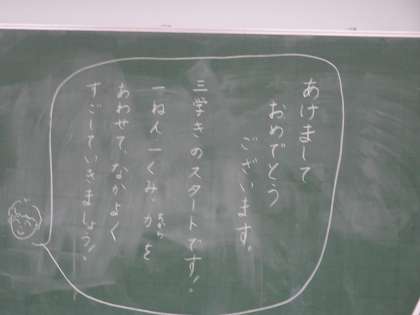 あけまして
おめでとう
ございます。
三学きのスタートです!
一ねん一くみ、力を
ちから
あわせて、なかよく
すごしていきましょう!